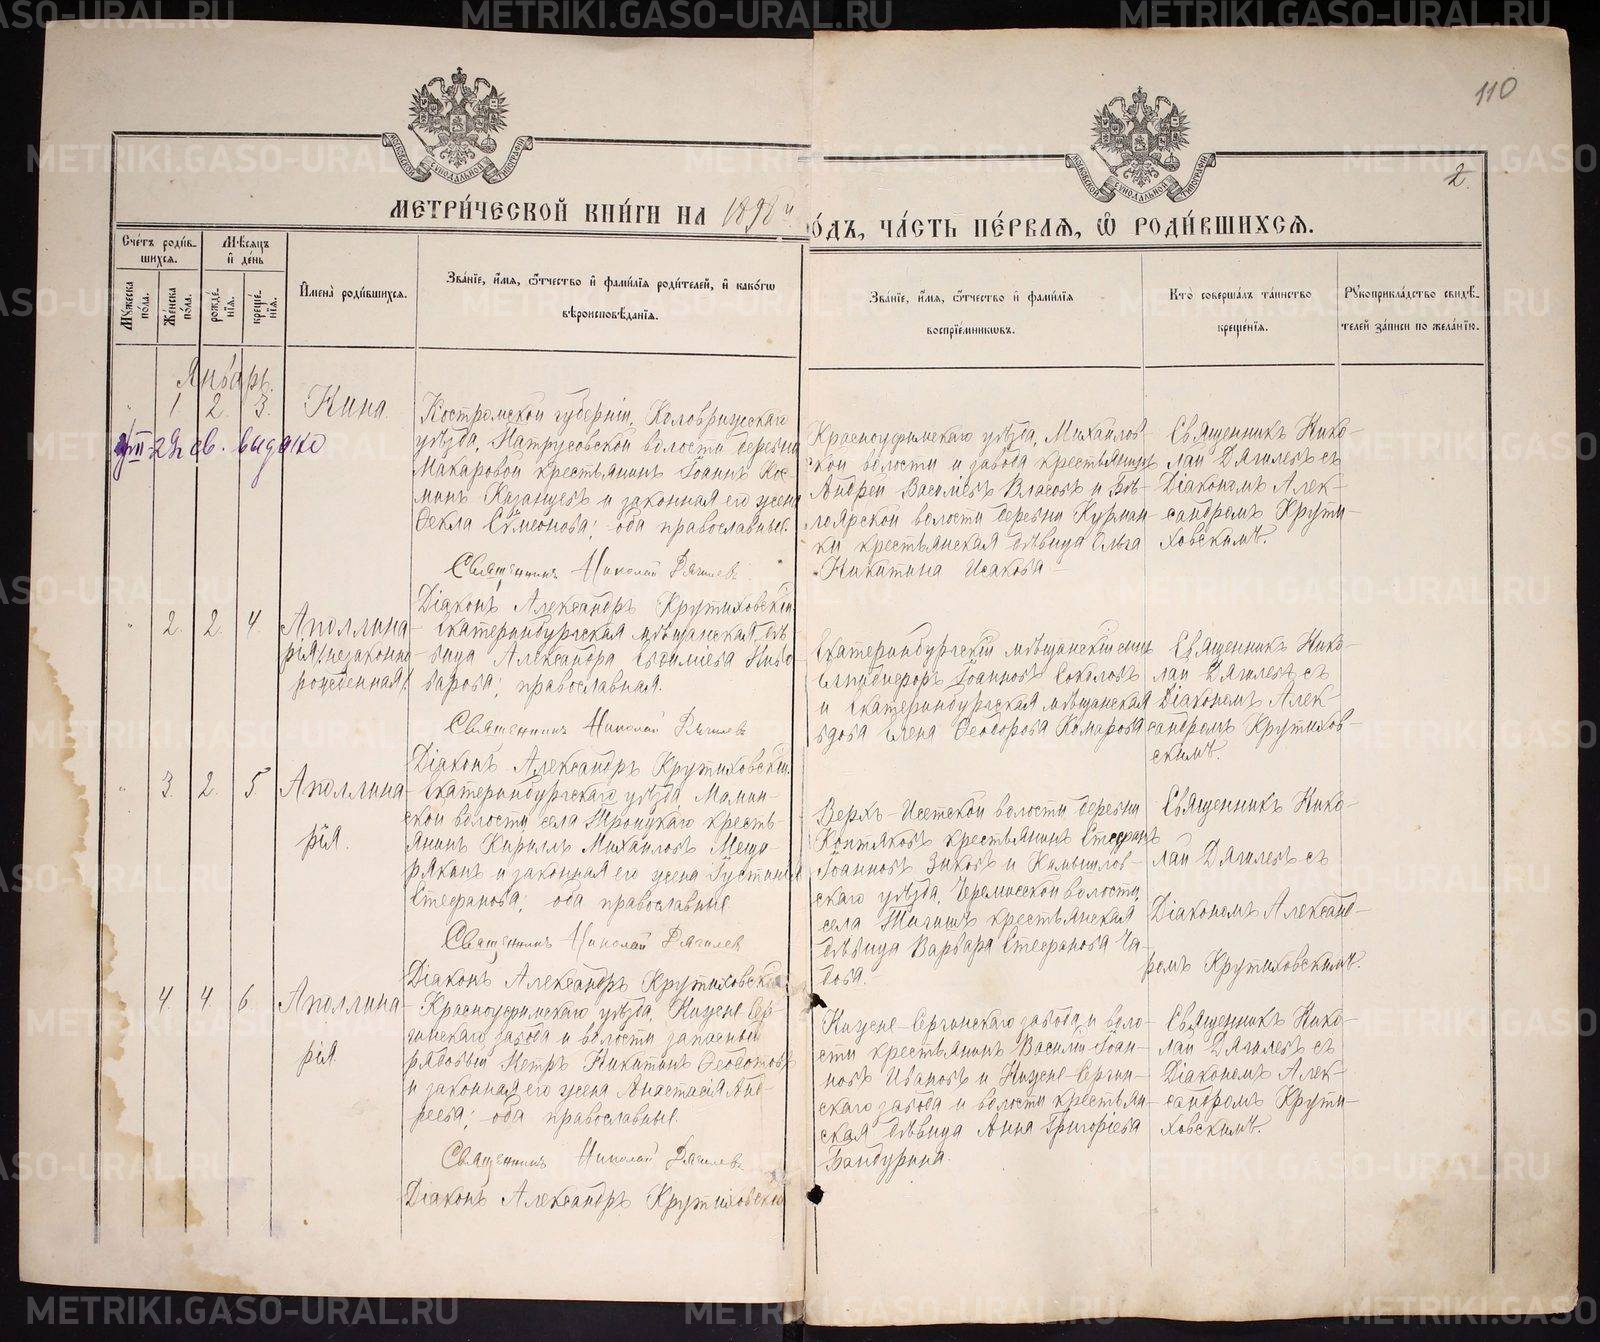 110
2.
МЕТРИ́ЧЕСКОЙ КНИ́ГИ НА 1898й
О́ДЪ, ЧА́СТЬ ПЕ́РВАЯ, Ѡ҆ РОДИ́ВШИХСЯ.
Сче́тъ роди́в-
шихся.
Мѣ́сяцъ
и҆ де́нь
Му́жеска
по́ла.
Же́нска
по́ла.
рожде́-
нїя.
креще́-
нїя.
И҆мена̀ роди́вшихся.
Зва́нїе, и҆́мя, ѻ҆́тчество и҆ фами́лїя роди́телей, и҆ како́гѡ
вѣроисповѣ́данїя.
Зва́нїе, и҆́мя, ѻ҆́тчество и҆ фами́лїя
воспрїе́мникѡвъ.
Кто̀ соверша́лъ та́инство
креще́нїя.
Рꙋкоприкла́дство свидѣ́-
телей за́писи по жела́нїю.
Январь.
1 2. 3.
Нина
св. выдано
Костромской губернiи, Кологривскаго
уѣзда, Матрусовской волости деревни
Макаровой крестьянинъ Iоаннъ Кос-
минъ Казанцевъ и законная его жена
Ѳекла Сѵмеонова; оба православные.
Священникъ Николай Дягилевъ
Дiаконъ Александръ Крутиховскiй.
Красноуфимскаго уѣзда, Михайлов-
ской волости и завода крестьянинъ
Андрей Васильевъ Власовъ и
волости деревни Курман-
ки крестьянская дѣвица Ольга
Никитина Исакова
Священникъ Нико-
лай Дягилевъ съ
Дiакономъ Алек-
сандромъ Крути-
ховскимъ.
2. 2. 4.
Аполлина-
рiя (незаконно
рожденная)
Екатеринбургская мѣщанская дѣ-
вица Александра Евфимiева
варова; православная.
Священникъ Николай Дягилевъ
Дiаконъ Александръ Крутиховскiй.
Екатеринбургскiй мѣщанскiй сынъ
Елпидифоръ Iоанновъ Соколовъ
и Екатеринбургская мѣщанская
вдова Елена Ѳеодорова Комарова
Священникъ Нико-
лай Дягилевъ съ
Дiакономъ Алек-
сандромъ Крутихов-
скимъ.
3. 2. 5.
Аполлина-
рiя.
Екатеринбургскаго уѣзда, Мамин-
ской волости села Троицкаго кресть-
янинъ Кириллъ Михайловъ Меще-
ряковъ и законная его жена Iустинiя
Стефанова; оба православные
Священникъ Николай Дягилев
Дiаконъ Александръ Крутиховскiй
Верхъ-Исетской волости деревни
Коптяковъ крестьянинъ Стефанъ
Iоанновъ Зыковъ и Камышлов-
скаго уѣзда, Черемисской волости,
села крестьянская
дѣвица Варвара Стефанова Ча-
дова.
Священникъ Нико-
лай Дягилевъ съ
Дiакономъ Александ-
ромъ Крутиховскимъ.
4. 4. 6.
Аполлина-
рiя
Красноуфимскаго уѣзда, Нижне-Сер-
гинскаго завода и волости запасный
рядовый Петръ Никитинъ Ѳедотовъ
и законная его жена Анастасiя Анд-
реева; оба православные.
Священникъ Николай Дягилевъ
Дiаконъ Александръ Крутиховскiй
Нижне-Сергинскаго завода и воло-
сти крестьянинъ Василiй Iоан-
новъ Ивановъ и Нижне-Сергин-
скаго завода и волости крестьян-
ская дѣвица Анна Григорiева
Бандурина.
Священникъ Нико-
лай Дягилевъ съ
Дiакономъ Алек-
сандромъ Крути-
ховскимъ.
METRIKI.GASO-URAL.RU